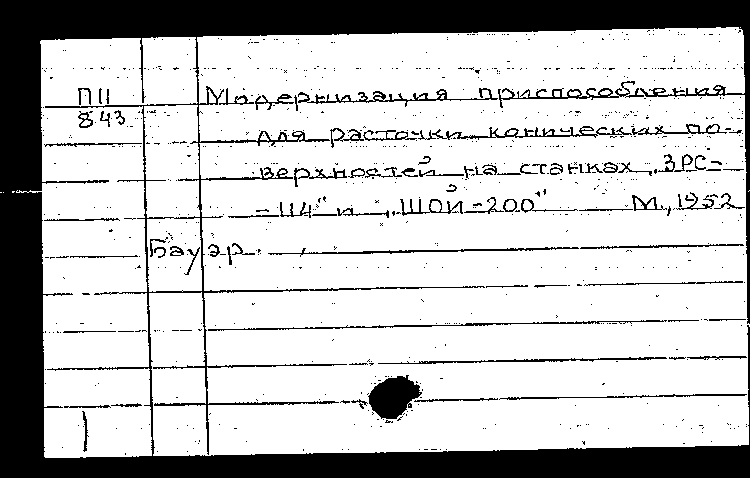 ПII Модернизация приспособления
843 для расточки конических по-
верхностей на станках „ЗРС-
-114" и „ШОЙ-200" М., 1952
Бауэр.